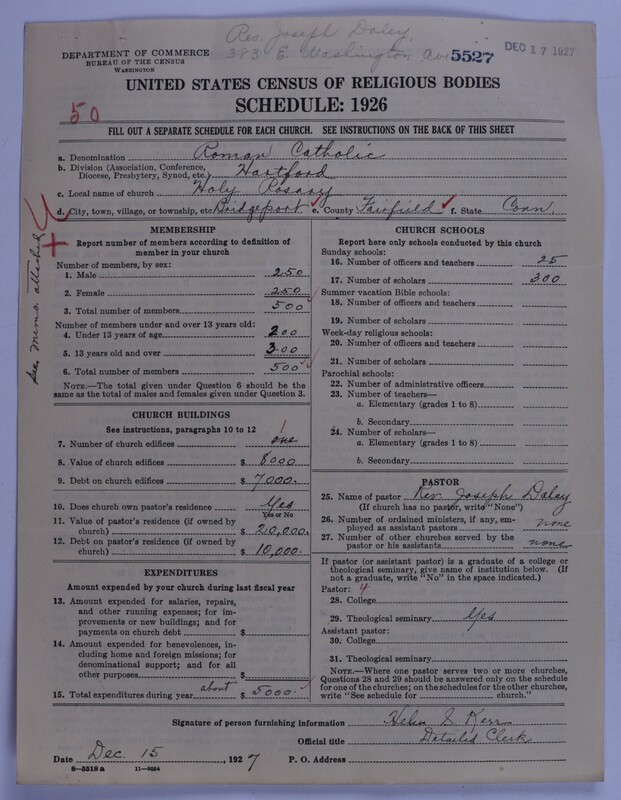 Rev. Joseph Daley,
383 E. Washington Ave
5527
DEC 17 1927
DEPARTMENT OF COMMERCE
BUREAU OF THE CENSUS
WASHINGTON
UNITED STATES CENSUS OF RELIGIOUS BODIES
SCHEDULE: 1926
50
FILL OUT A SEPARATE SCHEDULE FOR EACH CHURCH. SEE INSTRUCTIONS ON THE BACK OF THIS SHEET
a. Denomination Roman Catholic
b. Division (Association, Conference, Diocese, Presbytery, Synod, etc.) Hartford
c. Local name of church Holy Rosary
d. City, town, village, or township, etc. Bridgeport e. County Fairfield f. State Conn.
See memo. attached
MEMBERSHIP
Report number of members according to definition of
member in your church
Number of members, by sex:
1. Male 250
2. Female 250
3. Total number of members 500
Number of members under and over 13 years old:
4. Under 13 years of age 200
5. 13 years old and over 300
6. Total number of members 500
NOTE.—The total given under Question 6 should be the
same as the total of males and females given under Question 3.
CHURCH BUILDINGS
See instructions, paragraphs 10 to 12
1
7. Number of church edifices one
8. Value of church edifices $ 8000
9. Debt on church edifices $ 7000.
10. Does church own pastor's residence Yes
Yes or No
11. Value of pastor's residence (if owned by
church) $ 20,000.
12. Debt on pastor's residence (if owned by
church) $ 10,000.
EXPENDITURES
Amount expended by your church during last fiscal year
13. Amount expended for salaries, repairs,
and other running expenses; for im-
provements or new buildings; and for
payments on church debt $
14. Amount expended for benevolences, in-
cluding home and foreign missions; for
denominational support; and for all
other purposes $
15. Total expenditures during year about $ 5000.
CHURCH SCHOOLS
Report here only schools conducted by this church
Sunday schools:
16. Number of officers and teachers 25
17. Number of scholars 300
Summer vacation Bible schools:
18. Number of officers and teachers
19. Number of scholars
Week-day religious schools:
20. Number of officers and teachers
21. Number of scholars
Parochial schools:
22. Number of administrative officers
23. Number of teachers—
a. Elementary (grades 1 to 8)
b. Secondary
24. Number of scholars—
a. Elementary (grades 1 to 8)
b. Secondary
PASTOR
25. Name of pastor Rev. Joseph Daley
(If church has no pastor, write "None")
26. Number of ordained ministers, if any, em-
ployed as assistant pastors none
27. Number of other churches served by the
pastor or his assistants none
If pastor (or assistant pastor) is a graduate of a college or
theological seminary, give name of institution below. (If
not a graduate, write "No" in the space indicated.)
Pastor: 4
28. College
29. Theological seminary Yes
Assistant pastor:
30. College
31. Theological seminary
NOTE.—Where one pastor serves two or more churches,
Questions 28 and 29 should be answered only on the schedule
for one of the churches; on the schedules for the other churches,
write "See schedule for church."
Signature of person furnishing information Helen S. Kerr
Official title Detailed Clerk
Date Dec. 15, 1927 P. O. Address
8—5518 a 11—9034